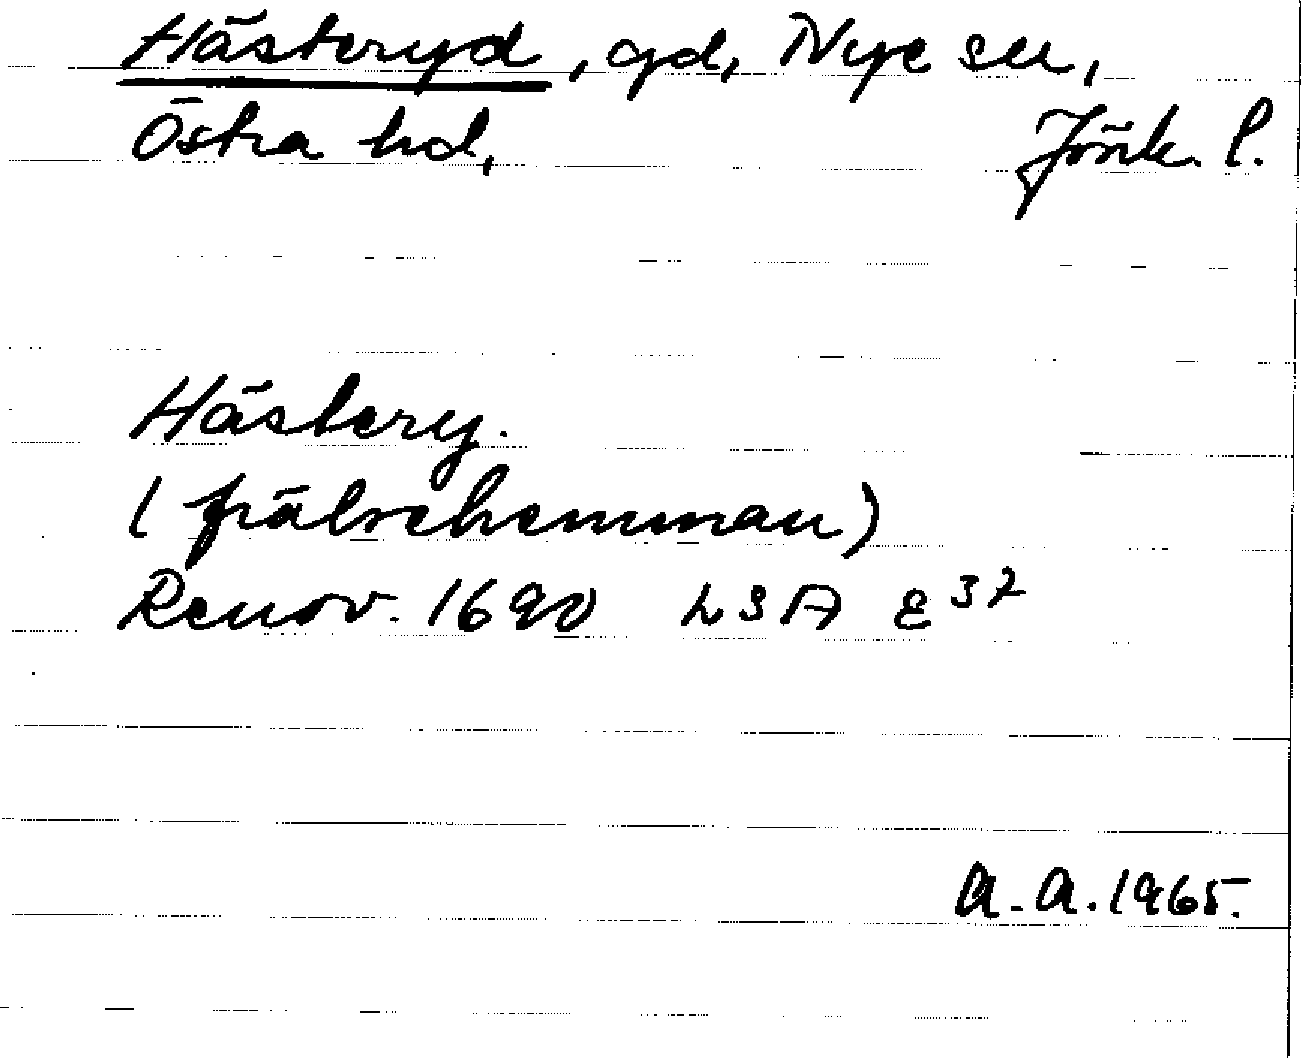 Hästeryd, gd, Nye sn,
Östra hd, Jönk. l.
Hästery.
(frälsehemman)
Renov. 1690 LSA E 37
A. A. 1965.